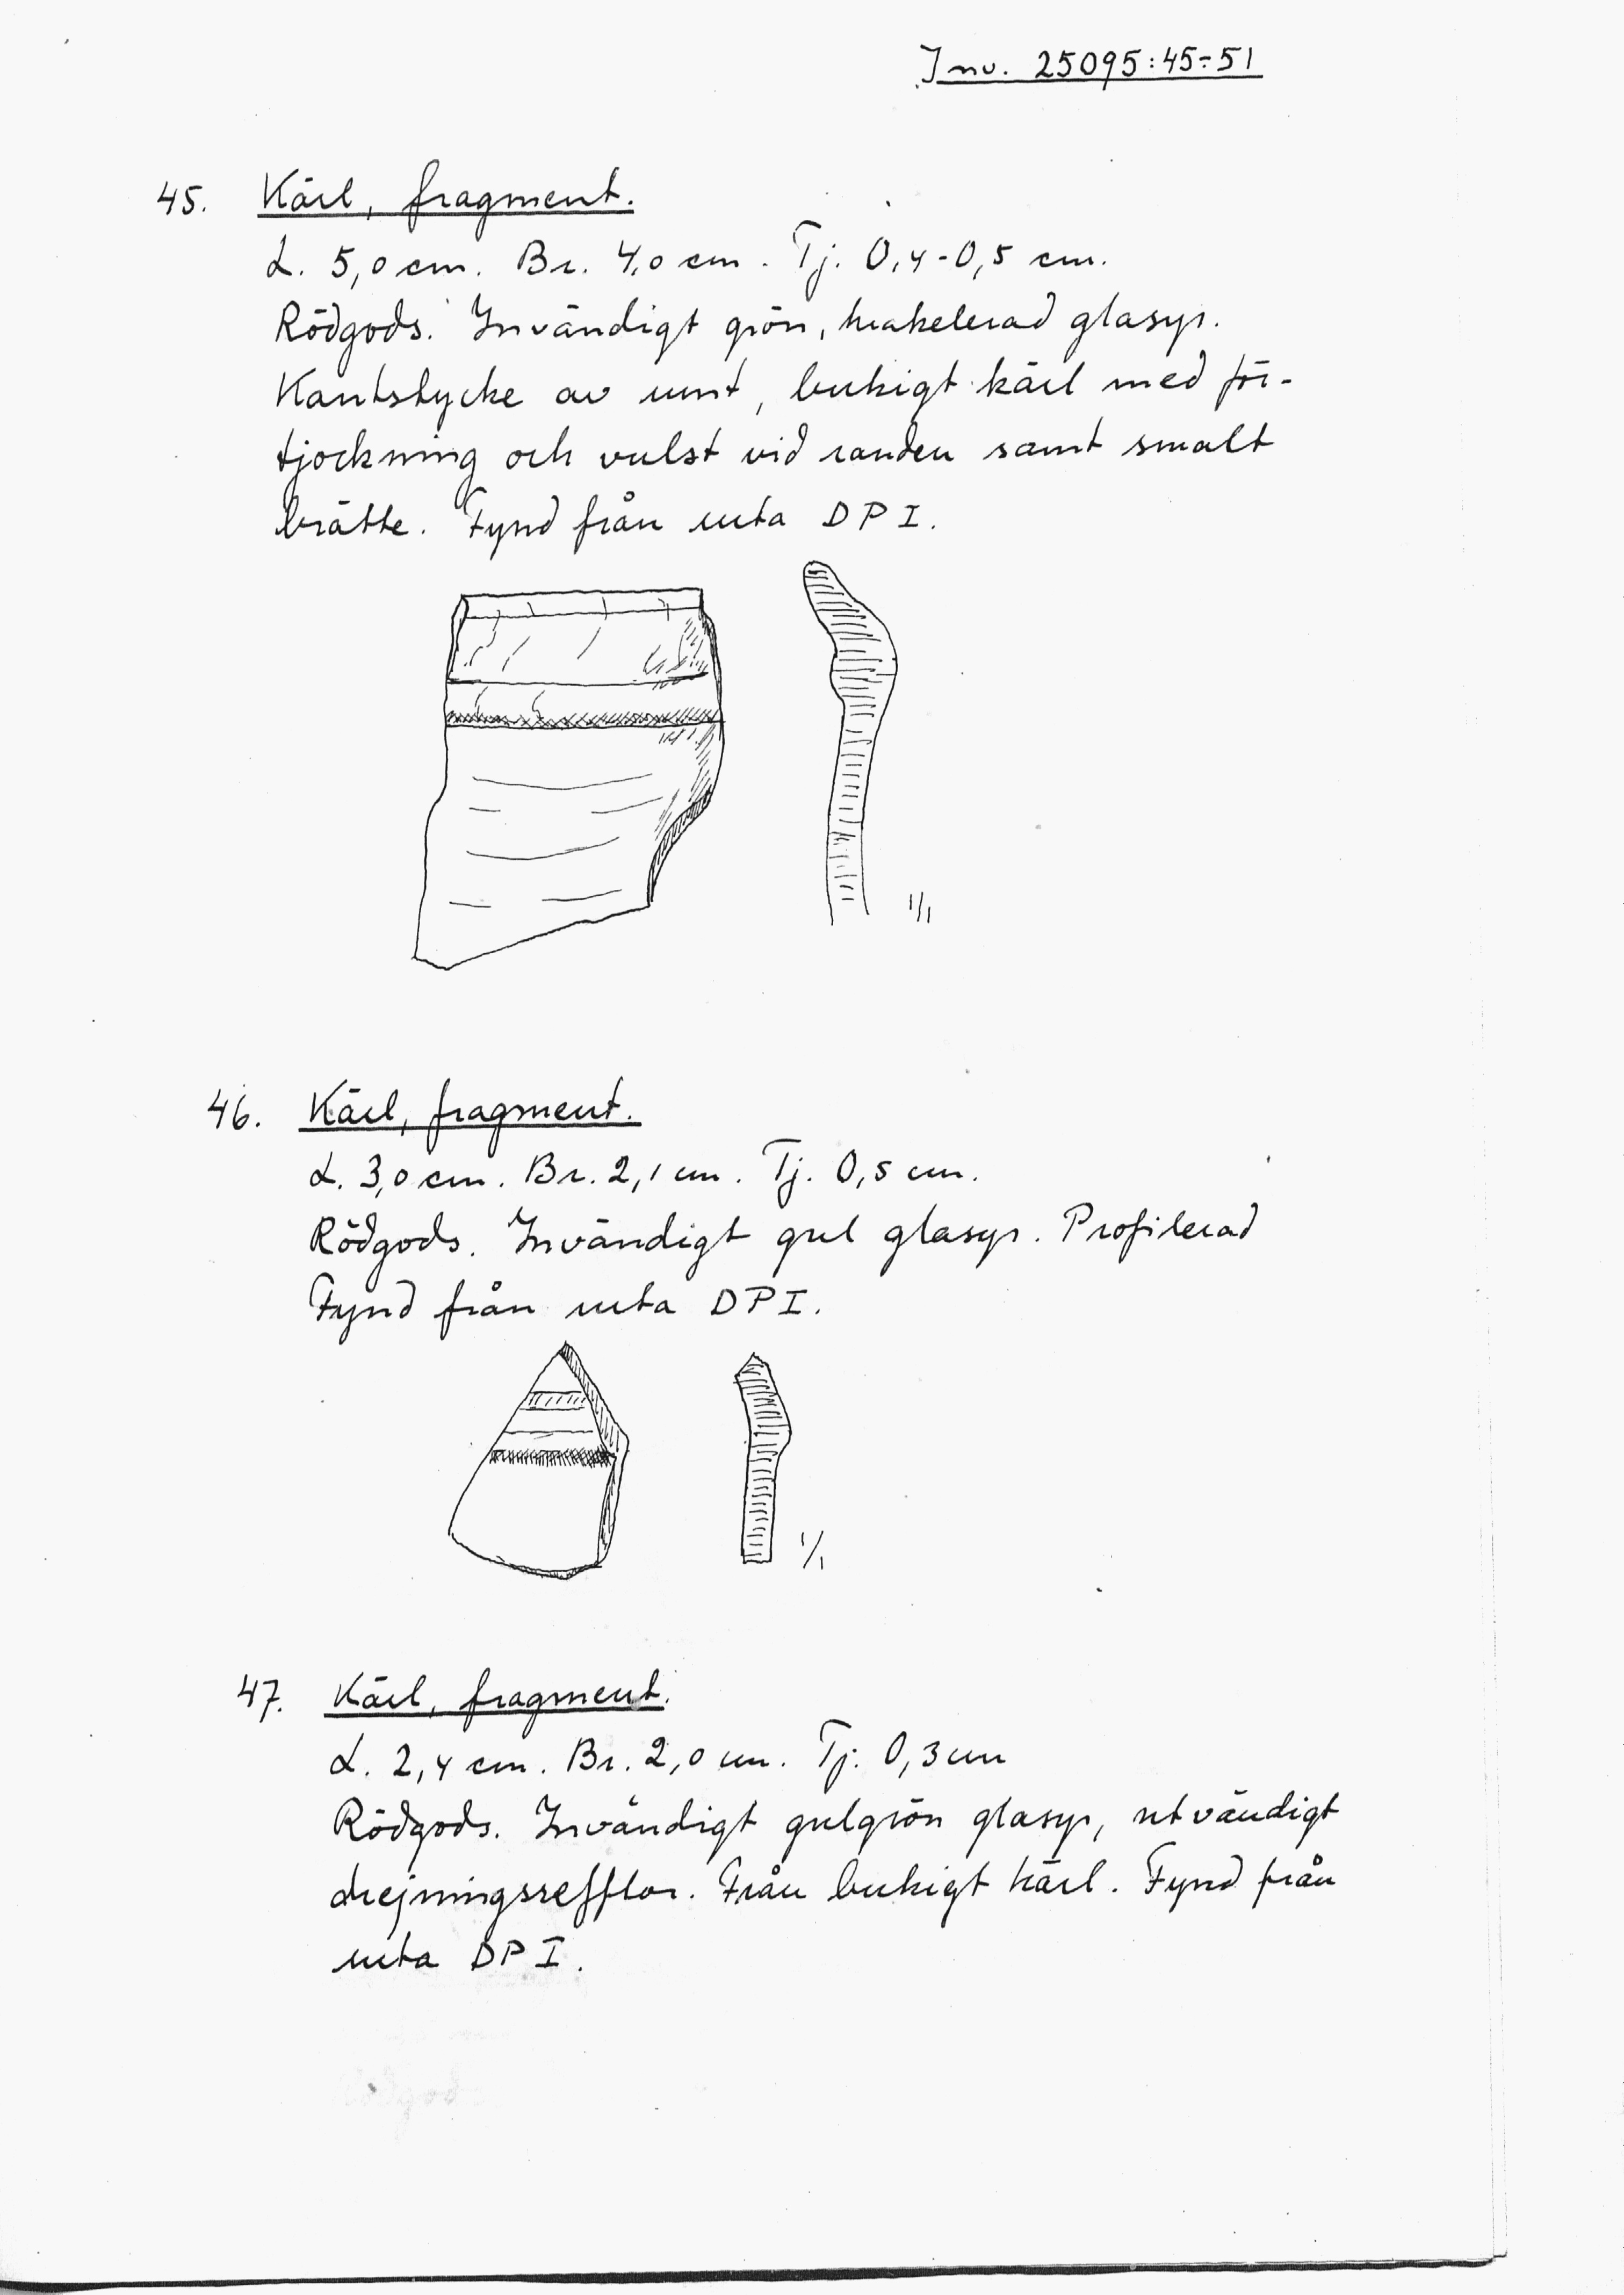 Inv. 25095:45-51
45. Kärl, fragment.
L. 5,0 cm. Br. 4,0 cm. Tj. 0,4-0,5 cm.
Rödgods. Invändigt grön, krakelerad glasyr.
Kantstycke av runt, bukigt kärl med för-
tjockning och vulst vid randen samt smalt
brätte. Fynd från ruta DPI.
1/1
46. Kärl, fragment.
L. 3,0 cm. Br. 2,1 cm. Tj. 0,5 cm.
Rödgods. Invändigt gul glasyr. Profilerad
Fynd från ruta DPI.
1/1
47. Kärl, fragment.
L. 2,4 cm. Br. 2,0 cm. Tj. 0,3 cm
Rödgods. Invändigt gulgrön glasyr, utvändigt
drejningsrefflor. Från bukigt kärl. Fynd från
ruta DPI.